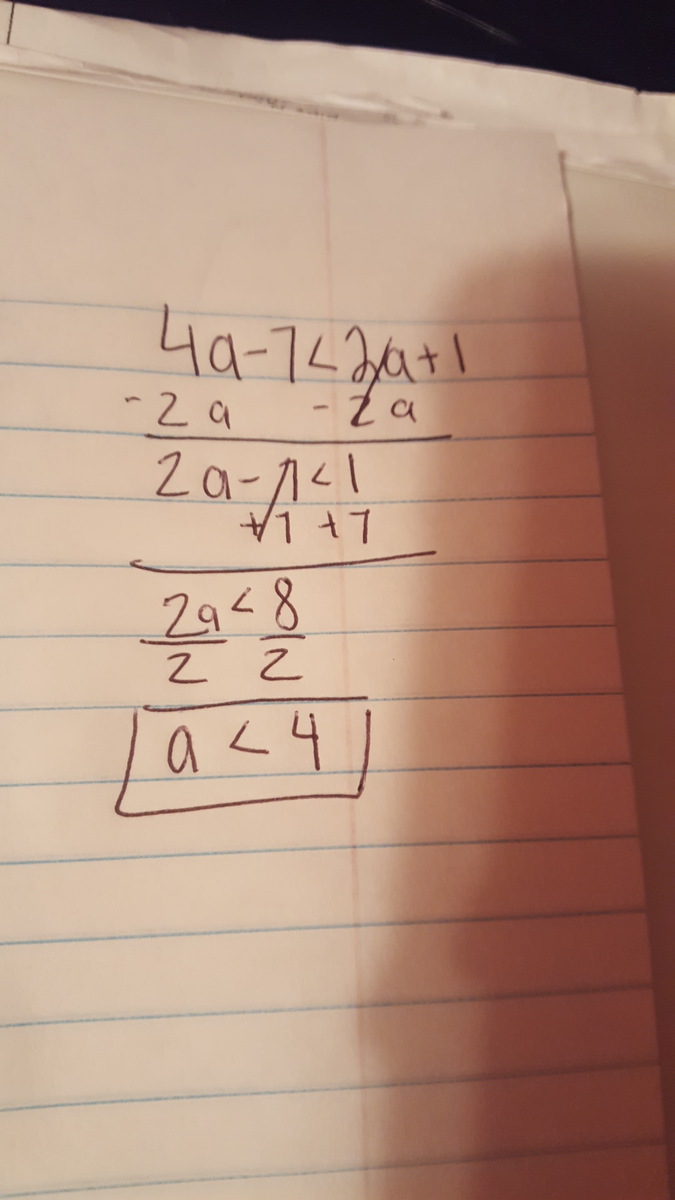 4a-7<2a+1
-2a -2a
2a-7<1
+7 +7
2a<8
2 2
a<4